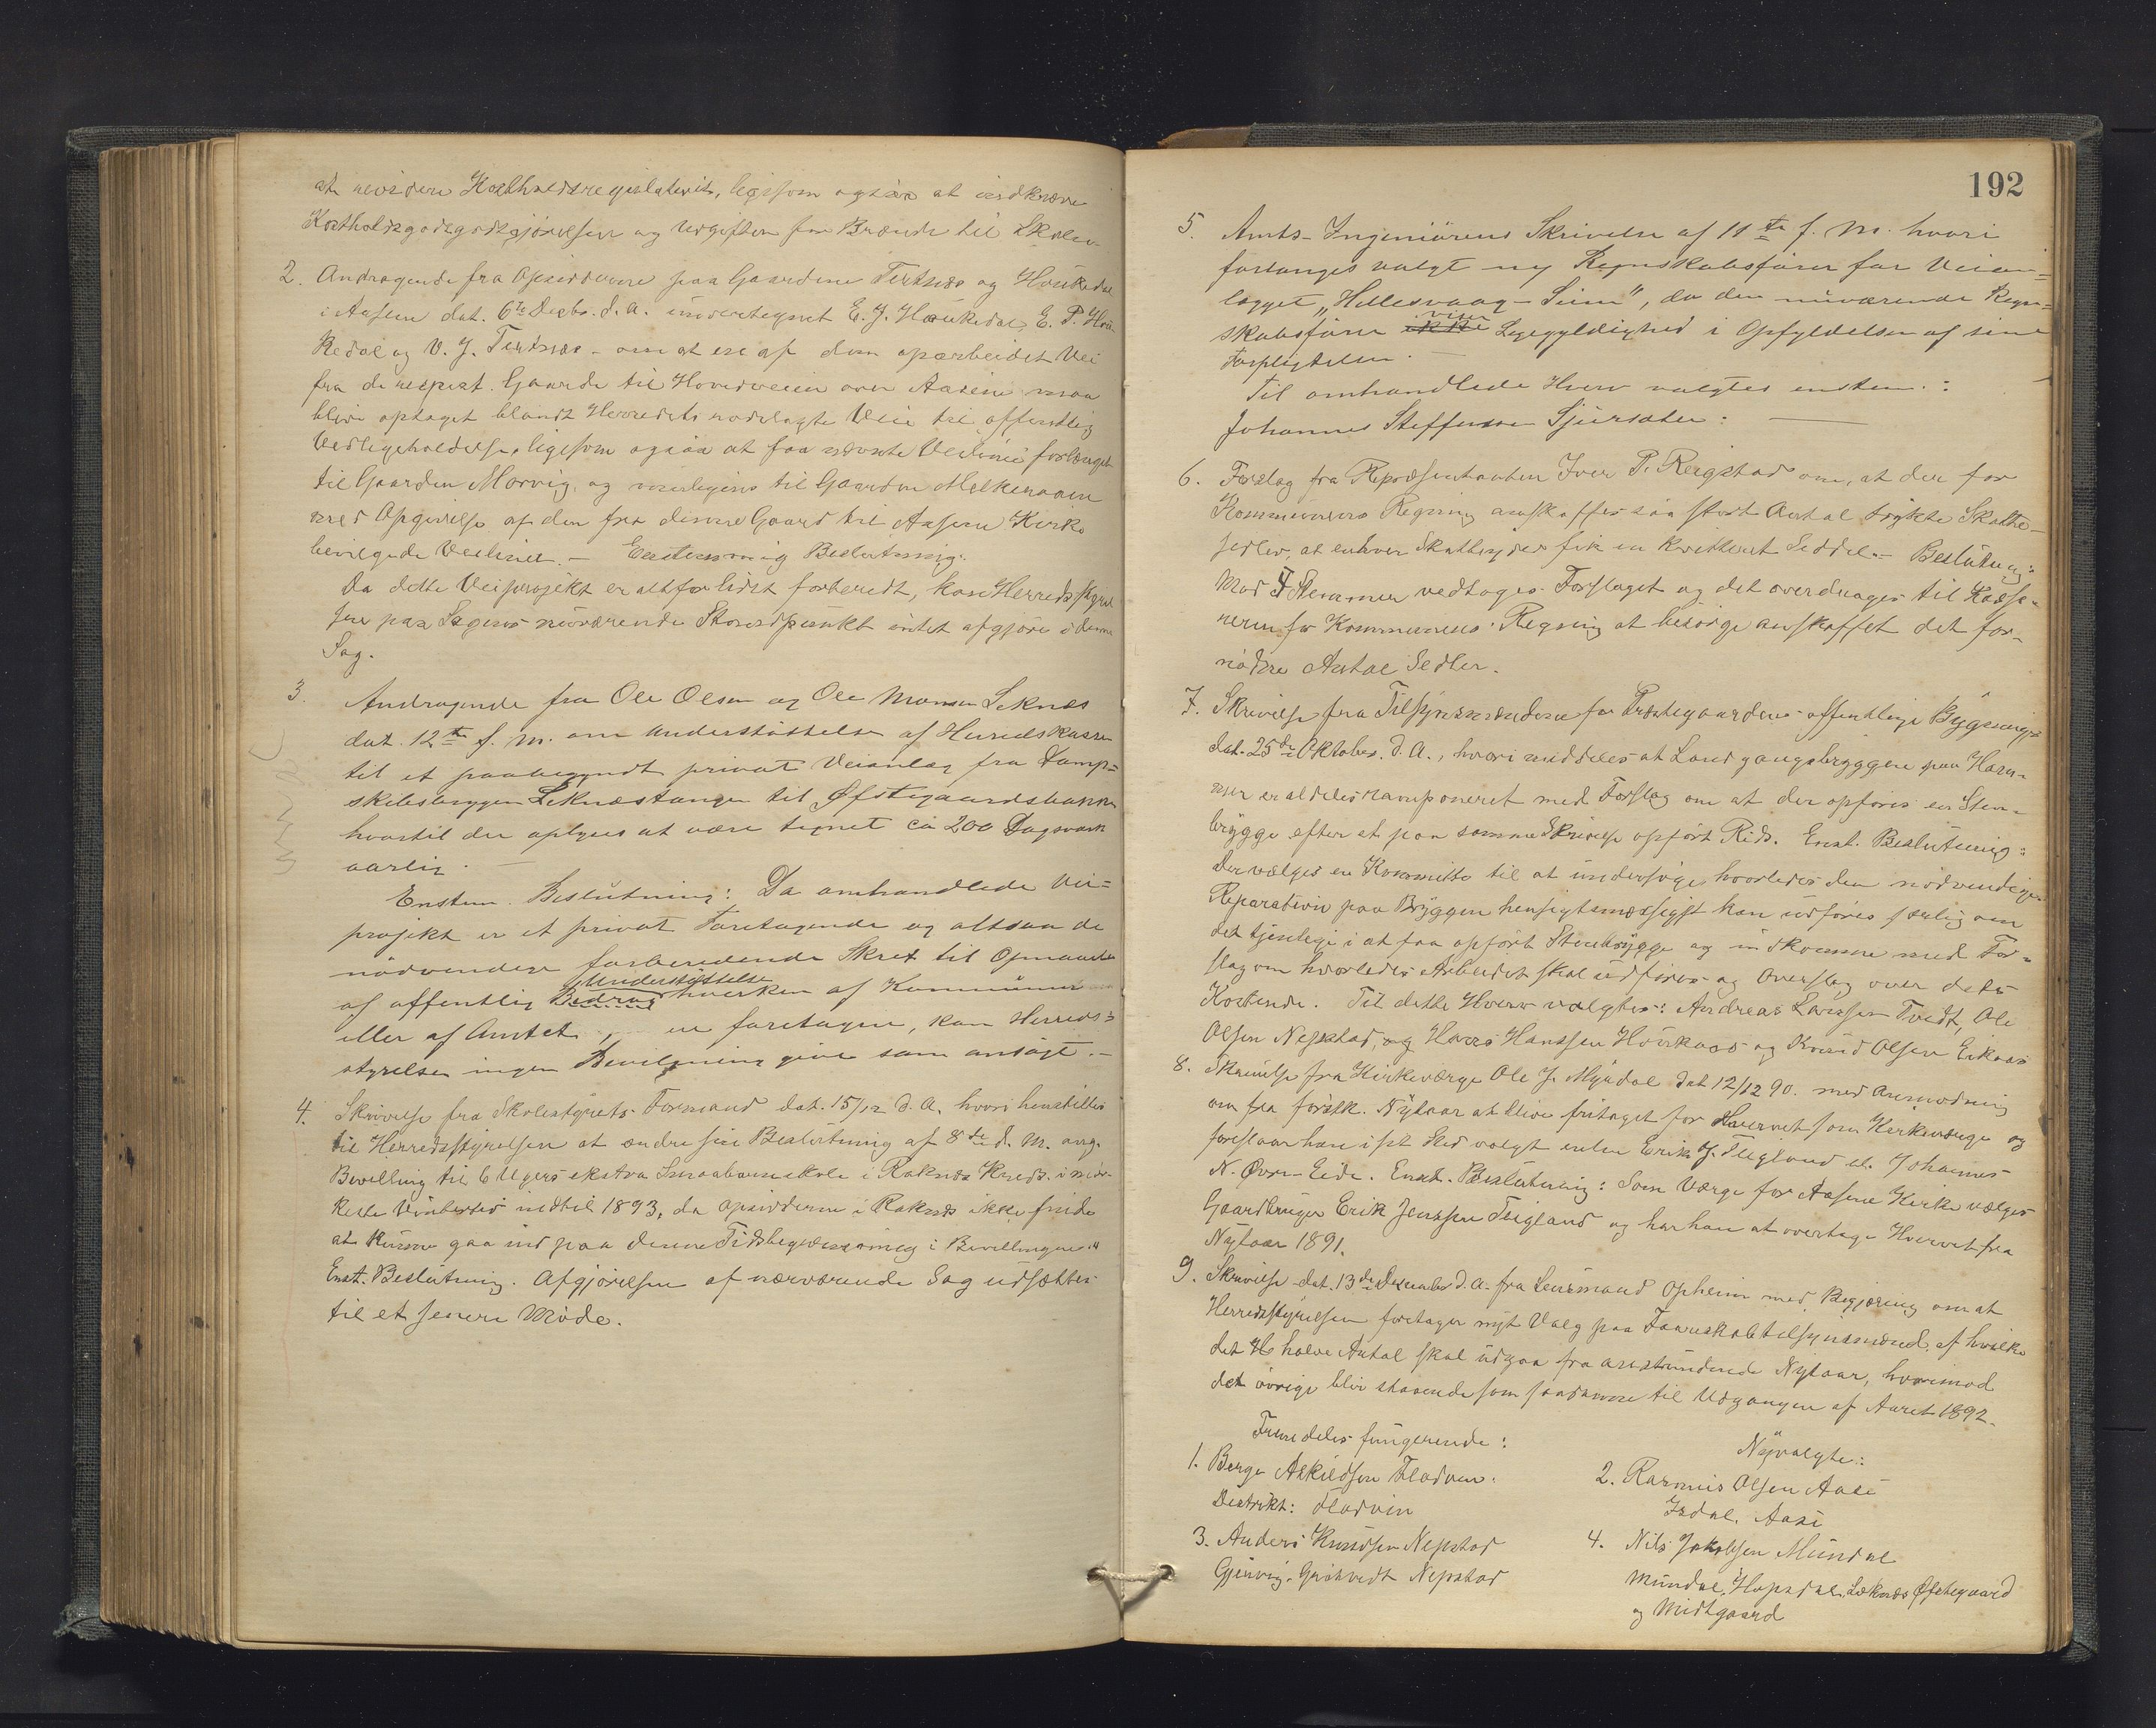 at revidere Kostholdsregulativet, ligesom ogsaa at indkræve
Kostholdsgodtgjörelsen og Udgiften for Brænde til Skolen
2. Andragende fra Opsidderne paa Gaardene Tertnæs og Houkedal
i Aasene dat. 6te Decbr. d. A. undertegnet E. J. Houkedal, E. P. Hou-
kedal og V. J. Tertnæs - om at en af dem oparbeidet Vei
fra de respekt. Gaarde til Hovedveien over Aasene maa
blive optaget blandt Herredets rodelagte Veie til offentlig
Vedligeholdelse, ligesom ogsaa at faa nævnte Veilinie forlænget
til Gaarden Morvig, og videre til Gaarden
med Opgivelse af den fra denne Gaard til Aasene Kirke
bevilgede Veilinie. - Enstemmig Beslutning:
Da dette Veiprojekt er altfor lidet forberedt, kan Herredsstyrel
sen paa Sagens nuværende Standpunkt intet afgjöre i denne
Sag.
3. Andragende fra Ole Olsen og Ole Monsen Leknes
dat. 12te f. m. om Understöttelse af Herredskassen
til et paabegyndt privat Veianlæg fra Damp=
skibsbryggen Leknæstangen til Øfstegaardsbakken
hvortil der oplyses at være tegnet ca 200 Dagsværk
aarlig. -
Enstem. Beslutning: Da omhandlede Vei=
projekt er et privat Foretagende og altsaa de
nödvendige forberedende Skrit til Opnaaelse
Understöttelse
af offentlig Bidrag hverken af Kommunen
eller af Amtet, er foretagen, kan Herreds=
styrelsen ingen Bevilgning give som ansögt. -
4. Skrivelse fra Skolestyrets Formand dat. 15/12 d. A. hvori henstilles
til Herredsstyrelsen at ændre sin Beslutning af 8de d. M. ang.
Bevilling til 6 Ugers ekstra Smaabarnsskole i Raknes Kreds i mör-
keste Vintertid indtil 1893, da Opsidderne i Raknes ikke finde
at kunne gaa ind paa denne Tidsbegrænsning i Bevillingen."
Enst. Beslutning. Afgjörelsen af nærværende Sag udsættes
til et senere Möde.
192
5. Amts-Ingeniörens Skrivelse af 11te f. M. hvori
forlanges valgt ny Regnskabsförer for Veian=
lægget „Hellesvaag - Seim", da den nuværende Regn=
viser
skabsförer ikke Ligegyldighed i Opfyldelsen af sine
Forpligtelser. -
Til omhandlede Hverv valgtes enstem.:
Johannes Steffensen Sjursæter: -
6. Forslag fra Repræsentanten Iver P. Reigstad om, at der for
Kommunens Regning anskaffes saa stort Antal trykte Skatte-
sedler, at enhver Skatteyder fik en kvitteret Seddel. - Beslutning:
Mod 4 Stemmer vedtoges Forslaget og det overdrages til Kasse-
reren for Kommunens Regning at besörge anskaffet det for-
nödne Antal Sedler.
7. Skrivelse fra Tilsynsmændene for Præstegaardens offentlige Bygninger
dat. 25de Oktober. d. A., hvori meddeles at Landgangsbryggen paa Ham-
mer er aldeles ramponeret med Forslag om at der opföres en Sten-
brygge efter et paa samme Skrivelse opfört Rids. Enst. Beslutning:
Der vælges en Kommitte til at undersöge hvorledes den nödvendige
Reparation paa Bryggen hensigtsmæssigst kan udföres særlig om
det tjenlige i at faa opfört Stenbrygge og indkomme med For-
slag om hvorledes Arbeidet skal udföres og Overslag over dets
Kostende. Til dette Hverv valgtes: Andreas Larssen Tvedt, Ole
Olsen Nepstad, og Hans Hanssen Hövikaas og Knud Olsen Eikaas
8. Skrivelse fra Kirkeværge Ole J. Myrdal dat 12/12 90. med Anmodning
om fra forstk. Nytaar at blive fritaget for Hvervet som Kirkeværge og
foreslaar han i sit Sted valgt enten Erik J. Tveiglund el. Johannes
N. Övre-Eide. Enst. Beslutning: Som Værge for Aasene Kirke vælges
Gaardbruger Erik Jenssen Teigland og har han at overtage Hvervet fra
Nytaar 1891.
9. Skrivelse dat. 13de December d. A. fra Lensmand Opheim med Begjæring om at
Herredsstyrelsen foretager nyt Valg paa Faareskabtilsynsmænd, af hvilke
det halve Antal skal udgaa fra anstundende Nytaar, hvorimod
det övrige blir staaende som saadanne til Udgangen af Aaret 1892.
Fremdeles fungerende:
Nyvalgte:
1. Berge Askildsen Fladven.
Distrikt: Fladvin
2. Rasmus Olsen Aase
Isdal, Aase
3. Anders Knudsen Nepstad
Gjervig, Nepstad
4. Nils Jakobsen Mundal
Mundal, Hopsdal, Leknæs Øfstegaard
og Midtgaard